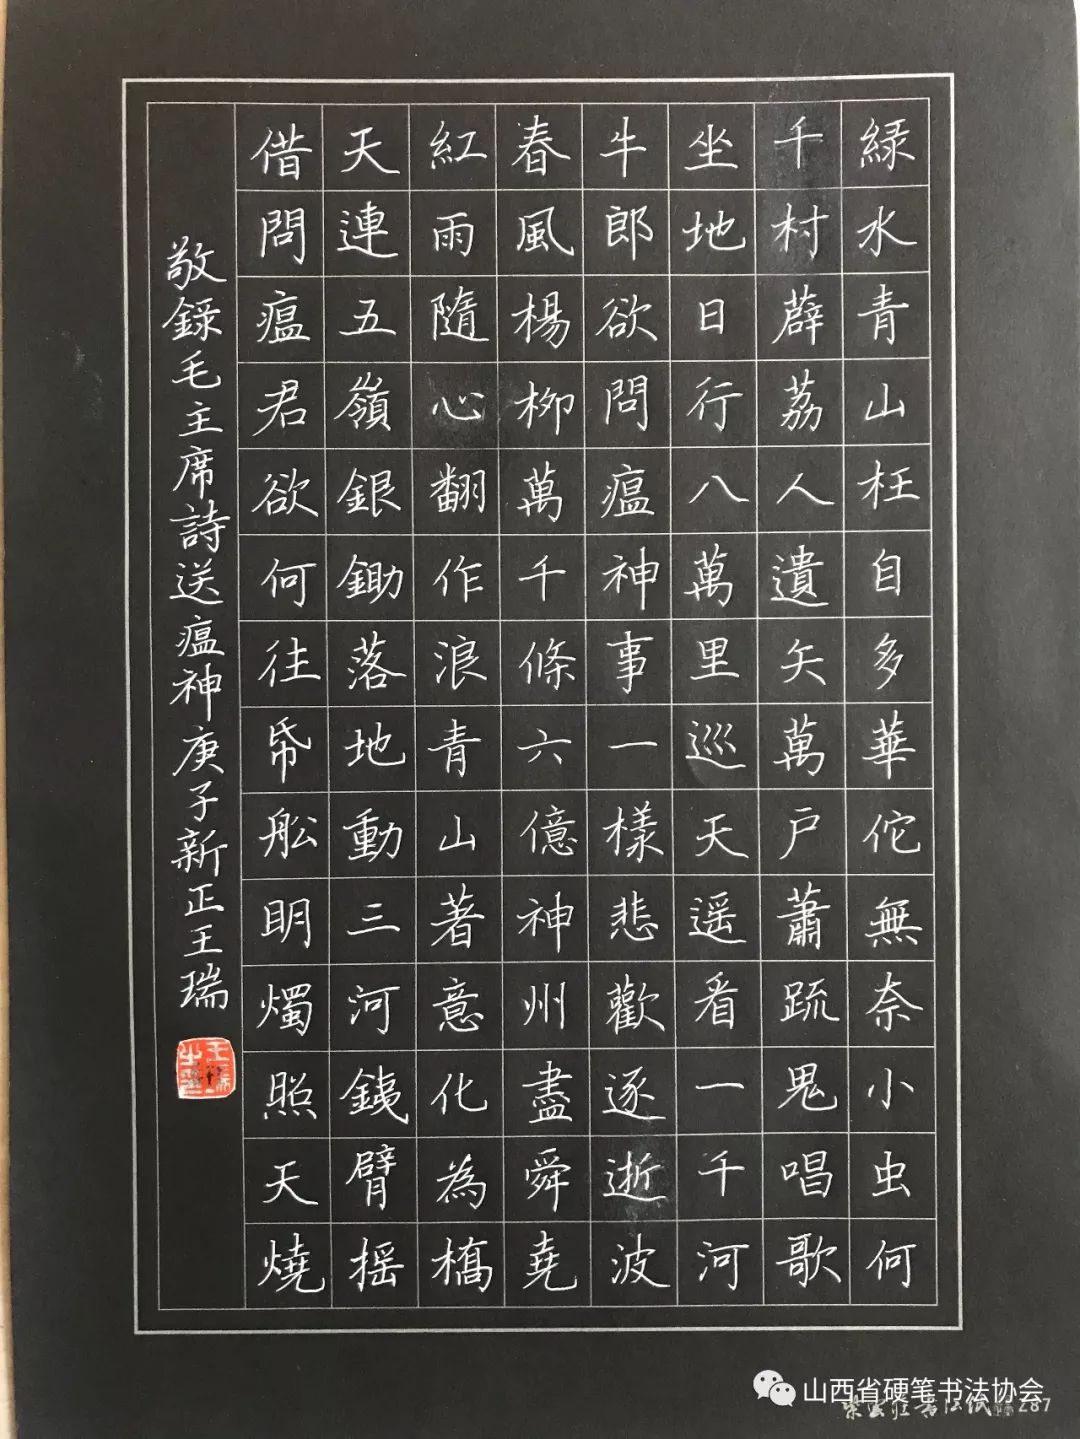 綠水青山枉自多華佗無奈小虫何
千村薜荔人遺矢萬户蕭疏鬼唱歌
坐地日行八萬里巡天遥看一千河
牛郎欲問瘟神事一樣悲歡逐逝波
春風楊柳萬千條六億神州盡舜堯
紅雨隨心翻作浪青山著意化為橋
天連五嶺銀鋤落地動三河鐵臂摇
借問瘟君欲何往帋船明燭照天燒
敬録毛主席詩送瘟神庚子新正王瑞
山西省硬笔书法协会
287